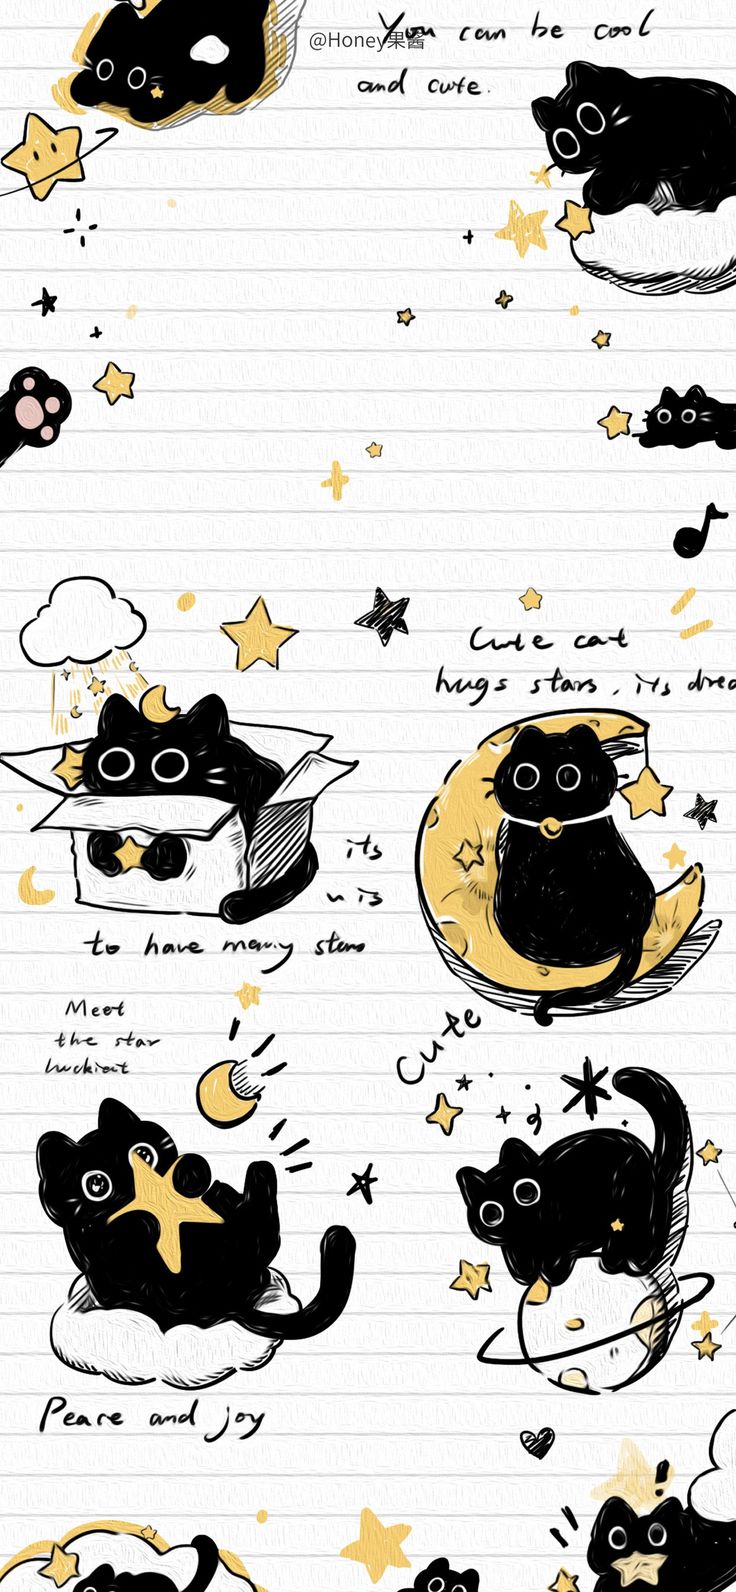 @Honey果酱
You can be cool
and cute.
Cute cat
hugs stars, its
its
to have many stars
Meet
the star
Cute
Peace and joy